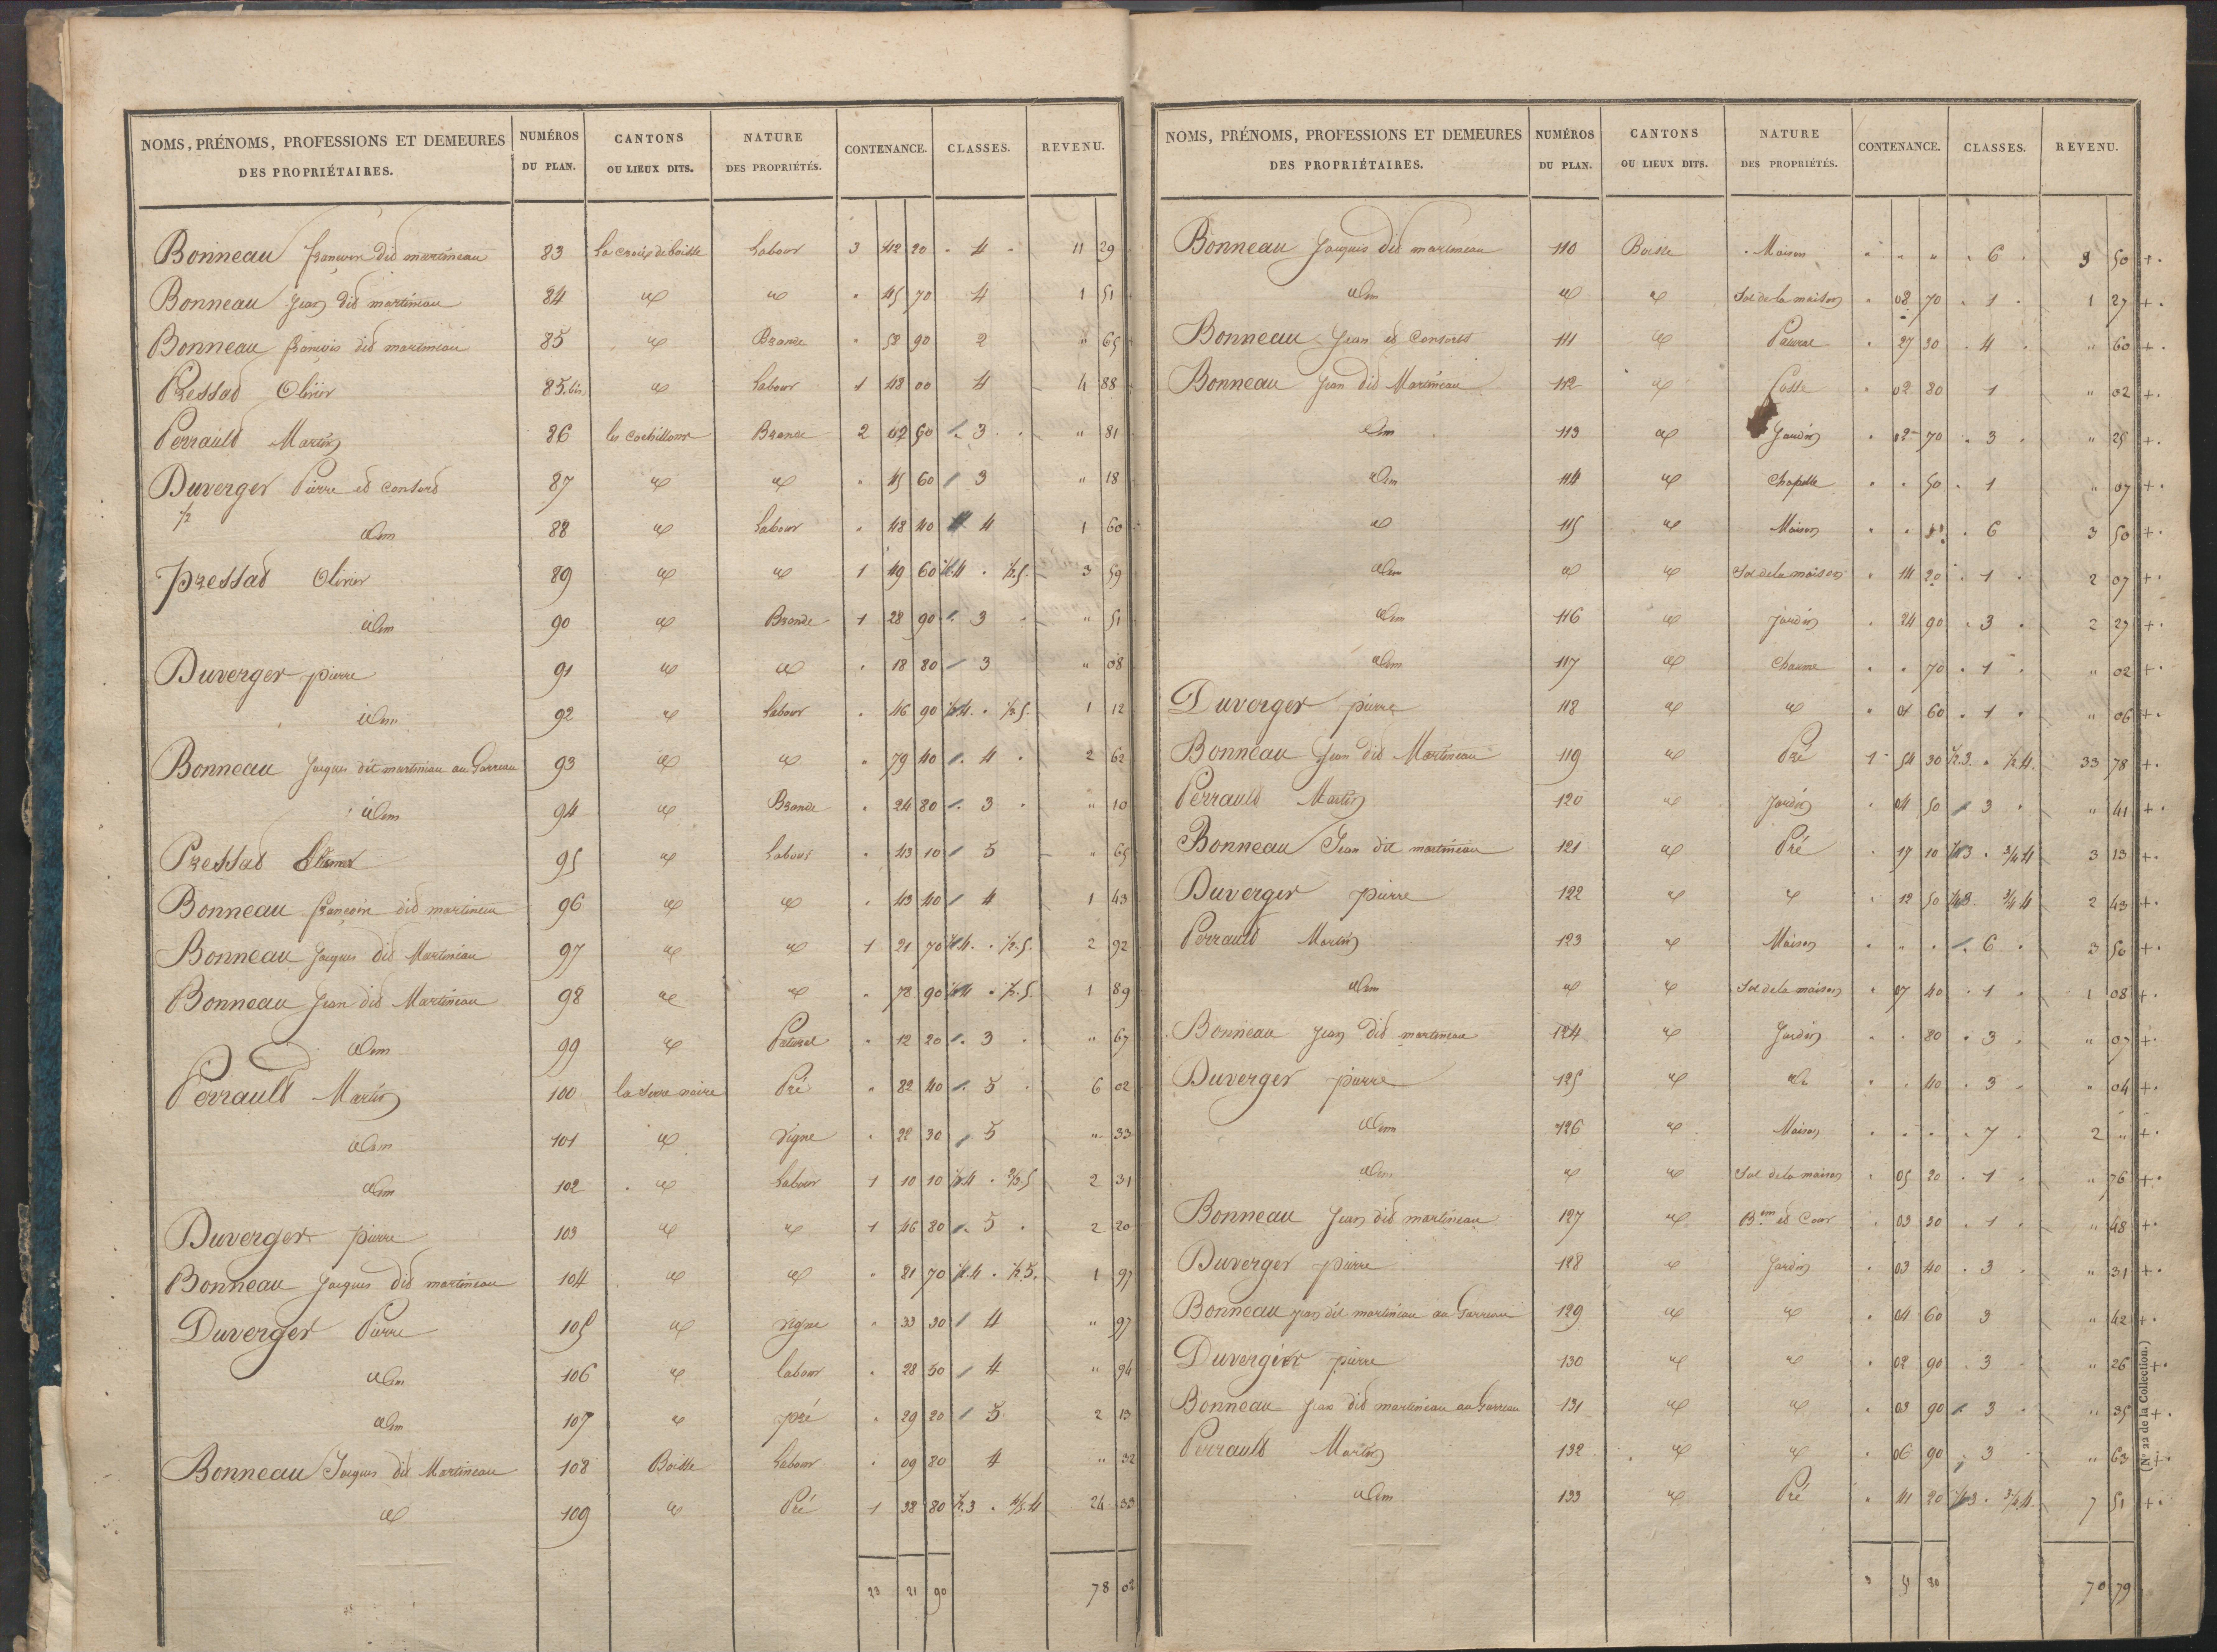 NOMS, PRÉNOMS, PROFESSIONS ET DEMEURES DES PROPRIÉTAIRES. NUMÉROS DU PLAN. CANTONS OU LIEUX DITS. NATURE DES PROPRIÉTÉS. CONTENANCE. CLASSES. REVENU.
Bonneau dit martineau 83 La croix de boisse Labour 3 42 20 4 11 29
Bonneau Jean dit martineau 84 id id 45 70 4 1 51
Bonneau françois dit martineau 85 id Brande 58 90 2 " 65
Pressat Olivier 85.bis id Labour 1 48 00 4 4 88
Perrault Martin 86 Brande 2 3 " 81
Duverger Pierre et consort 87 id id 45 60 3 " 18
1/2 idem 88 id Labour 48 40 4 1 60
Pressat Olivier 89 id id 1 49 60 1/2.4 1/2.5. 3 59
idem 90 id Brande 1 28 90 3 " 51
Duverger pierre 91 id id 18 80 3 " 08
idem 92 id Labour 46 90 1/2.4. 1/2.5. 1 12
Bonneau Jacques dit martineau au Garreau 93 id id 79 40 4 2 62
idem 94 id Brande 24 80 3 " 10
Pressat 95 id Labour 43 10 5 " 65
Bonneau dit martineau 96 id id 43 40 4 1 43
Bonneau Jacques dit Martineau 97 id id 1 21 70 1/2.4. 1/2.5. 2 92
Bonneau Jean dit Martineau 98 id id 78 90 1/2.4 1/2.5. 1 89
idem 99 id Patural 12 20 3 " 67
Perrault Martin 100 la terre noire Pré 82 40 5 6 02
idem 101 id Vigne 22 30 5 " 33
idem 102 id Labour 1 10 10 2 31
Duverger pierre 103 id id 1 46 80 5 2 20
Bonneau Jacques dit martineau 104 id id 81 70 1/2.4 1/2.5. 1 97
Duverger Pierre 105 id vigne 33 30 4 " 97
idem 106 id labour 28 50 4 " 94
idem 107 id pré 29 20 5 2 13
Bonneau Jacques dit Martineau 108 Boisse Labour 09 80 4 " 32
id 109 id Pré 1 38 80 24 33
23 21 90 78 02
NOMS, PRÉNOMS, PROFESSIONS ET DEMEURES DES PROPRIÉTAIRES. NUMÉROS DU PLAN. CANTONS OU LIEUX DITS. NATURE DES PROPRIÉTÉS. CONTENANCE. CLASSES. REVENU.
Bonneau Jacques dit martineau 110 Boisse Maison " " " 6 3 50 +
idem id id Sol de la maison 08 70 1 1 27 +
Bonneau Jean et Consorts 111 id Patural 27 30 4 " 60 +
Bonneau Jean dit Martineau 112 id 02 80 1 " 02 +
idem 113 id Jardin 02 70 3 " 25 +
idem 114 id Chapelle 50 1 " 07 +
id 115 id Maison 6 3 50 +
idem id id Sol de la maison 14 20 1 2 07 +
idem 116 id jardin 24 90 3 2 27 +
idem 117 id Chaume 70 1 " 02 +
Duverger pierre 118 id id 60 1 " 06 +
Bonneau Jean dit Martineau 119 id Pré 1 54 30 1/2.3. 1/2.4. 33 78 +
Perrault Martin 120 id jardin 04 50 3 " 41 +
Bonneau Jean dit martineau 121 id Pré 17 10 1/4 3 3/4 4 3 13 +
Duverger pierre 122 id id 12 50 1/4 3. 3/4 4 2 43 +
Perrault Martin 123 id Maison 6 3 50 +
idem id id Sol de la maison 07 40 1 1 08 +
Bonneau Jean dit martineau 124 id Jardin 80 3 " 07 +
Duverger pierre 125 id id 40 3 " 04 +
idem 126 id Maison 7 2 " +
idem id id Sol de la maison 05 20 1 " 76 +
Bonneau Jean dit martineau 127 id Bem et Cour 03 30 1 " 48 +
Duverger pierre 128 id Jardin 03 40 3 " 31 +
Bonneau Jean dit martineau au Garreau 129 id id 04 60 3 " 42 +
Duvergier pierre 130 id id 02 90 3 " 26 +
Bonneau Jean dit martineau au Garreau 131 id id 03 90 3 " 35 +
Perrault Martin 132 id id 06 90 3 " 63 +
idem 133 id Pré 41 20 1/4 3 3/4.4. 7 51 +
70 79
(N° 22 de la Collection.)